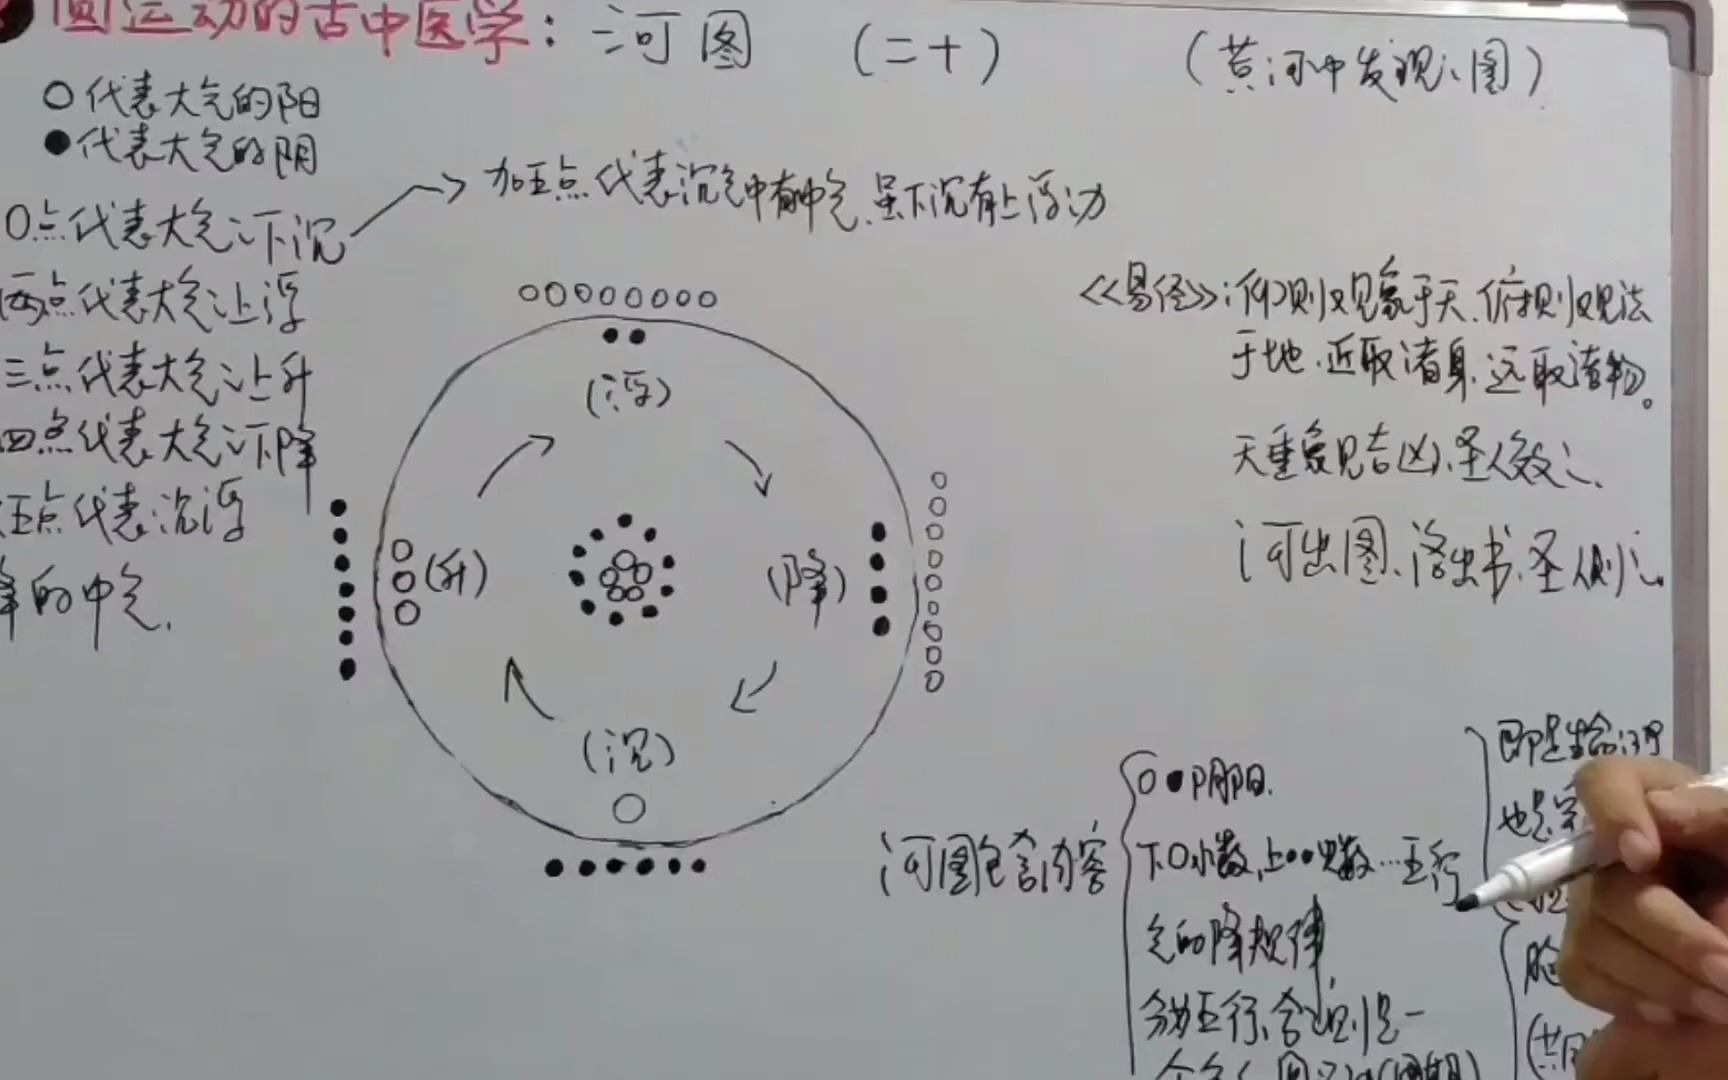 圆运动的古中医学：河图 （二十） （黄河中发现之图）
○代表大气的阳
●代表大气的阴
○点代表大气之下沉
加五点代表沉气中有中气、虽下沉有上浮动
两点代表大气之上浮
三点代表大气之上升
四点代表大气之下降
五点代表沉浮
降的中气.
(浮)
(升)
(降)
(沉)
《易经》：仰则观象于天、俯则观法
于地、近取诸身、远取诸物。
天垂象见吉凶、圣人效之、
河出图、洛出书、圣人则之。
河图包含内容
○●阴阳.
下○水数,上●●火数…五行
气的降规律,
分为五行、合之则是一
即是生命
也是